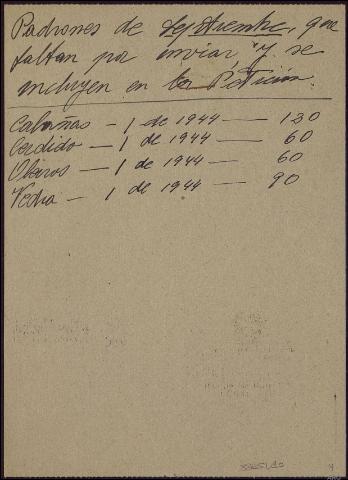 Padrones de Septiembre, que
faltan por enviar, y se
incluyen en la Petición.
Cabañas - 1 de 1944 - 120
Cerdido - 1 de 1944 - 60
Oleiros - 1 de 1944 - 60
Vedra - 1 de 1944 - 90